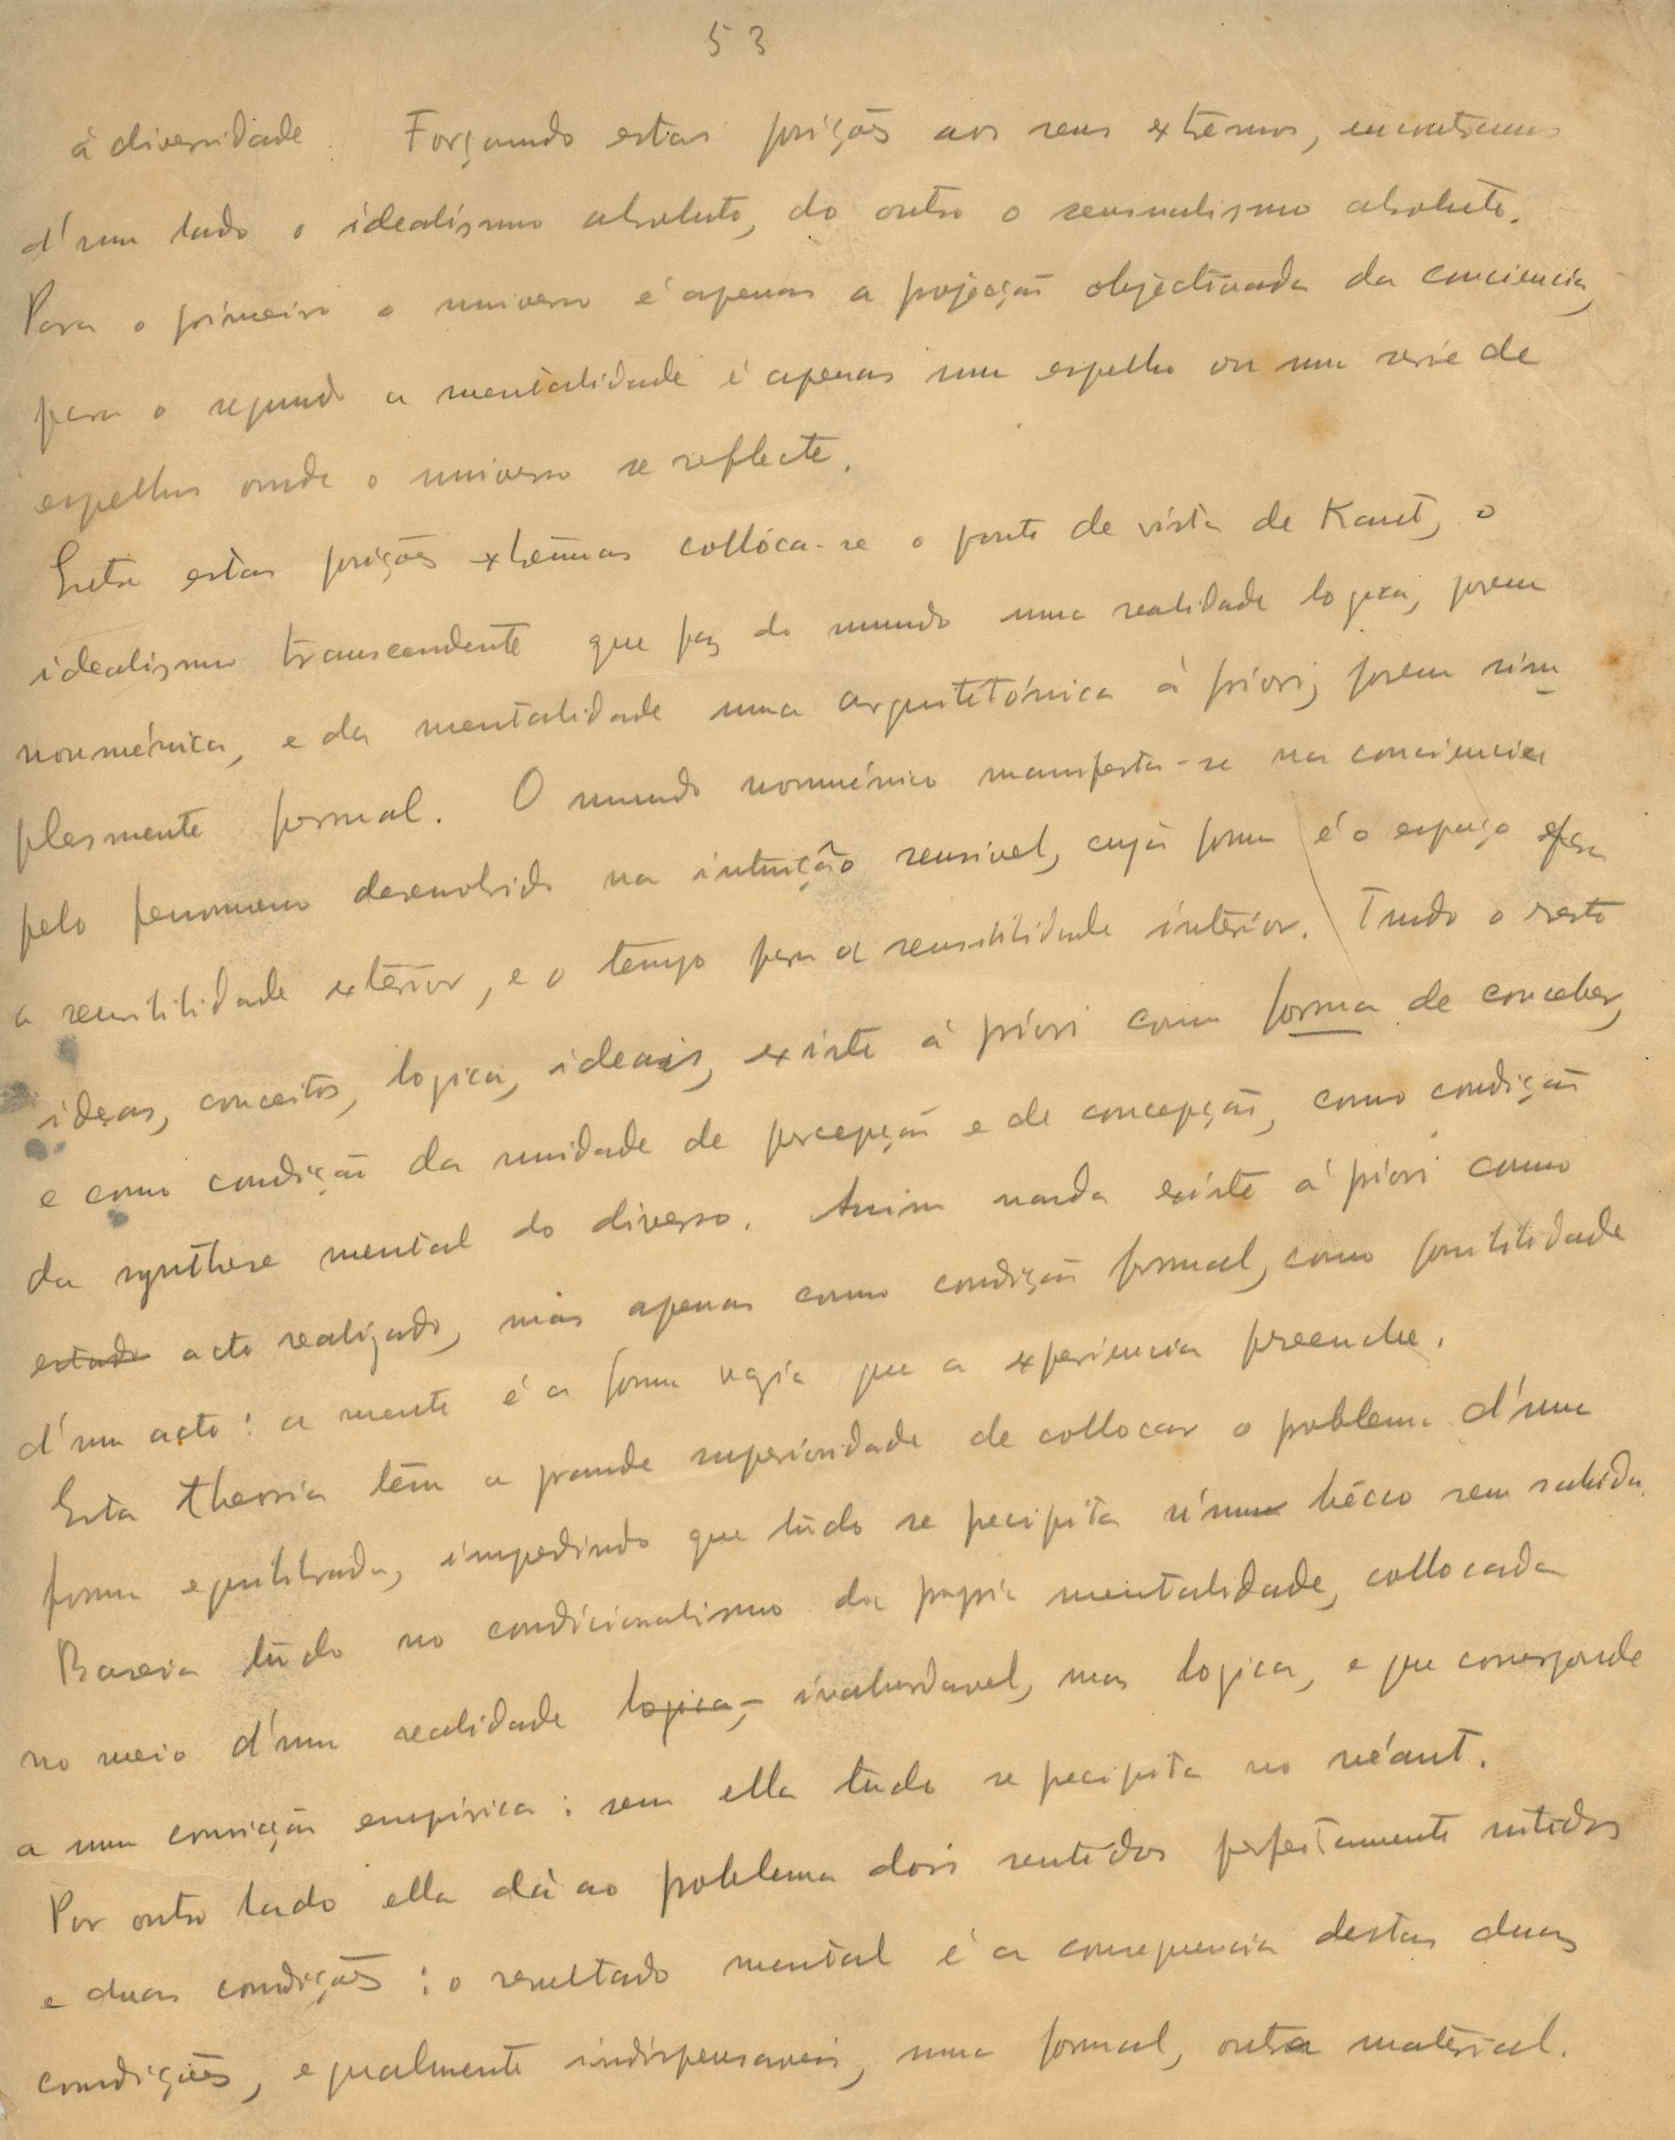 53
à diversidade. Forçando estas posições aos seus extremos, encontramos
d'um lado o idealismo absoluto, do outro o sensualismo absoluto.
Para o primeiro o universo é apenas a projecção objectivada da conciencia,
para o segundo a mentalidade é apenas um espelho ou um serie de
espelhos onde o universo se reflecte.
Entre estas posições extremas collóca-se o ponto de vista de Kant, o
idealismo transcendente que faz do mundo uma realidade logica, porem
nouménica, e da mentalidade uma arquitetónica à priori, porem sim
plesmente formal. O mundo noumenico manifesta-se na conciencia
pelo fenomeno desenvolvido na intuição sensivel, cuja forma é o espaço para
a sensibilidade exterior, e o tempo para a sensibilidade interior. Tudo o resto
ideas, conceitos, logica, ideais, existe à priori como forma de conceber,
e como condição da unidade de percepção e de concepção, como condição
da synthese mental do diverso. Assim nada existe à priori como
estado acto realizado, mas apenas como condição formal, como possibilidade
d'um acto: a mente é a forma vazia que a experiencia preenche.
Esta theoria têm a grande superioridade de collocar o problema d'uma
forma equilibrada, impedindo que tudo se precipita n'um bêcco sem sahida.
Baseia tudo no condicionalismo da propria mentalidade, collocada
no meio d'uma realidade logica, inabordavel, mas logica, e que corresponde
a uma convicção empirica: sem ella tudo se precipita no néant.
Por outro lado ella dà ao problema dois sentidos perfeitamente nitidos
e duas condições: o resultado mental é a consequencia destas duas
condições, egualmente indispensaveis, uma formal, outra material.